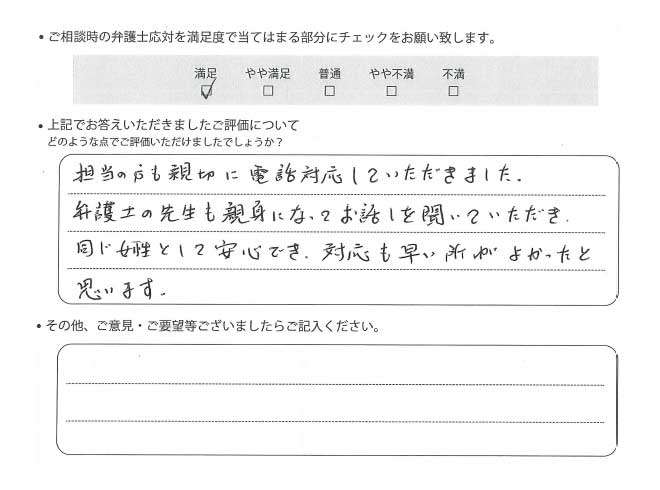 • ご相談時の弁護士応対を満足度で当てはまる部分にチェックをお願い致します。
満足 やや満足 普通 やや不満 不満
☑ □ □ □ □
• 上記でお答えいただきましたご評価について
どのような点でご評価いただけましたでしょうか？
担当の方も親切に電話対応していただきました。
弁護士の先生も親身になってお話しを聞いていただき、
同じ女性として安心でき、対応も早い所がよかったと
思います。
• その他、ご意見・ご要望等ございましたらご記入ください。